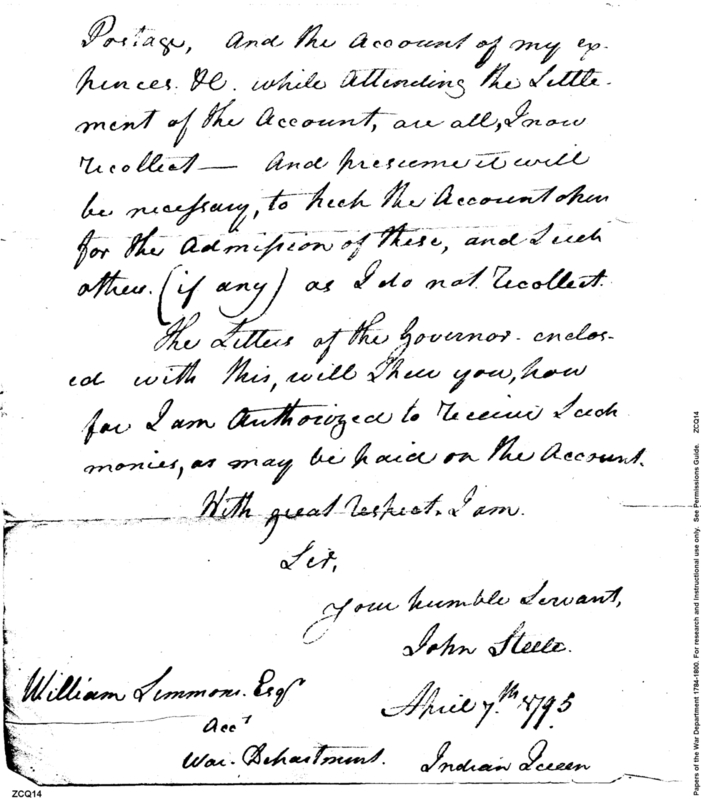 Postage, and the Account of my ex-
pences &c. while attending the Settle-
ment of the Account, are all, I now
recollect— And presume it will
be necessary, to keep the Account open
for the Admission of these, and such
others (if any) as I do not recollect.
The Letters of the Governor enclos-
ed with this, will shew you, how
far I am Authorized to receive such
monies, as may be paid on the Account.
With great respect. I am.
Sir,
Your humble Servant,
John Steele.
William Simmons. Esqr
April 7.th 1795
Acct
War. Department.
Indian Queen
ZCQ14
Papers of the War Department 1784-1800. For research and instructional use only. See Permissions Guide. ZCQ14